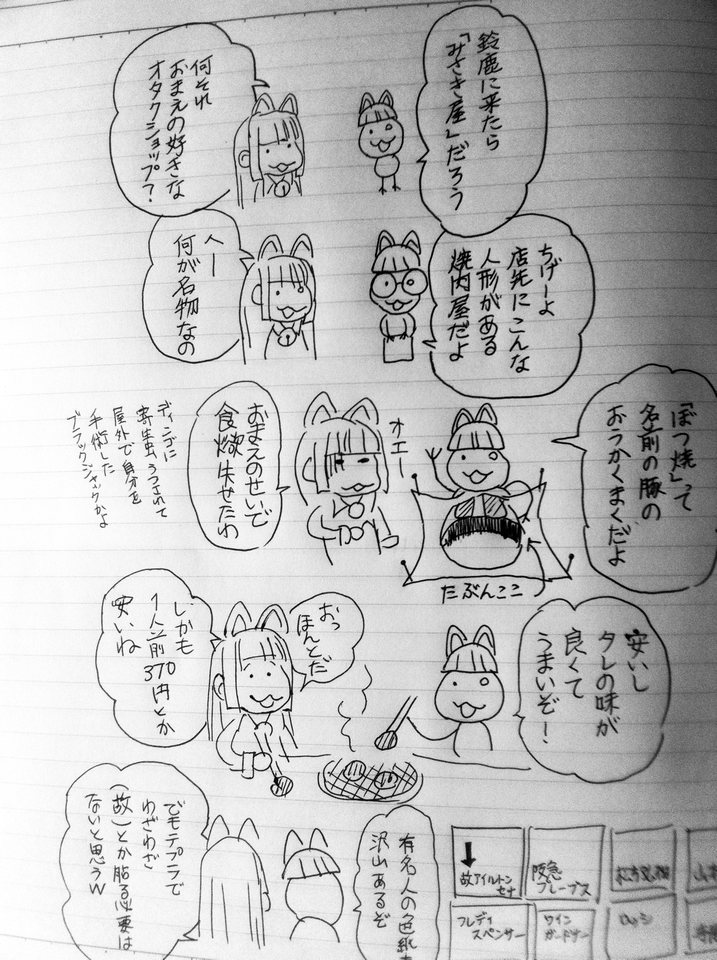 鈴鹿に来たら
「みさき屋」だろう
何それ
おまえの好きな
オタクショップ?
ちげーよ
店先にこんな
人形がある
焼肉屋だよ
へー
何が名物なの
「ぼつ焼」って
名前の豚の
おうかくまくだよ
たぶんここ
オエー
おまえのせいで
食欲失せたわ
ディンゴに
寄生虫うつされて
屋外で自分を
手術した
ブラックジャックかよ
安いし
タレの味が
良くて
うまいぞー!
おっ
ほんとだ
しかも
1人前370円とか
安いね
有名人の色紙も
沢山あるぞ
故アイルトン
セナ
阪急
ブレーブス
フレディ
スペンサー
ワイン
ガードナー
ロッシ
でもテプラで
わざわざ
(故)とか貼る必要は
ないと思うw